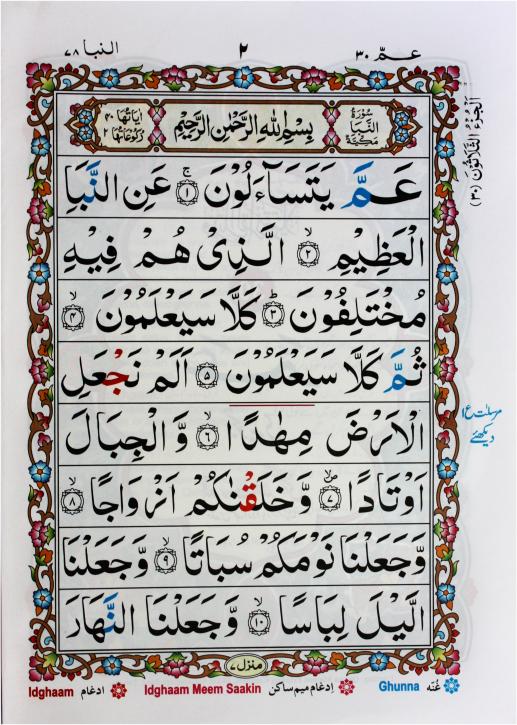 عمّ ٣٠ ٢ النبا ٧٨
سُوْرَةُ النَّبَاِ مَكِّيَّةٌ بِسْمِ اللهِ الرَّحْمٰنِ الرَّحِيْمِ اٰيَاتُهَا ٤٠ رُكُوْعَاتُهَا ٢
اَلْجُزْءُ الثَّلَاثُوْنَ (٣٠)
عَمَّ يَتَسَآءَلُوْنَ ۚ ١ عَنِ النَّبَاِ
الْعَظِيْمِ ۙ ٢ الَّذِيْ هُمْ فِيْهِ
مُخْتَلِفُوْنَ ؕ ٣ كَلَّا سَيَعْلَمُوْنَ ۙ ٤
ثُمَّ كَلَّا سَيَعْلَمُوْنَ ٥ اَلَمْ نَجْعَلِ
الْاَرْضَ مِهٰدًا ۙ ٦ وَّ الْجِبَالَ
اَوْتَادًا ۪ۙ ٧ وَّ خَلَقْنٰكُمْ اَزْوَاجًا ۙ ٨
وَّ جَعَلْنَا نَوْمَكُمْ سُبَاتًا ۙ ٩ وَّ جَعَلْنَا
الَّيْلَ لِبَاسًا ۙ ١٠ وَّ جَعَلْنَا النَّهَارَ
مرسلٰت ع ١
دیکھئے
منزل ٧
غُنّہ Ghunna اِدغام میم ساکن Idghaam Meem Saakin ادغام Idghaam